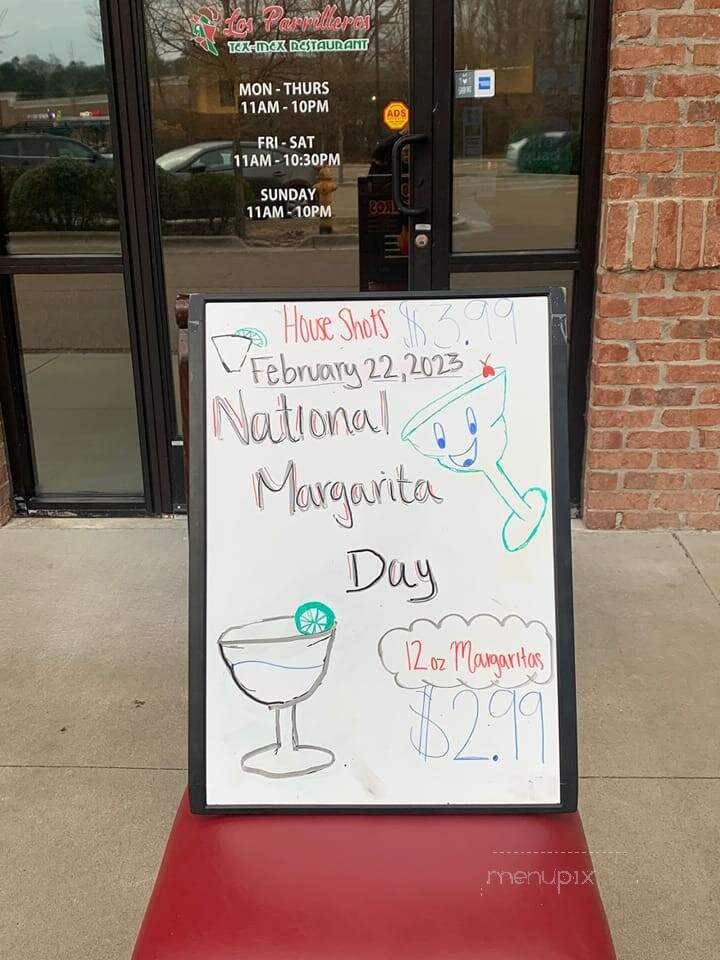 Los Parrilleros
TEX-MEX RESTAURANT
MON - THURS
11AM - 10PM
FRI - SAT
11AM - 10:30PM
SUNDAY
11AM - 10PM
ADS
House Shots $3.99
February 22, 2023
National
Margarita
Day
12 oz Margaritas
$2.99
menupix